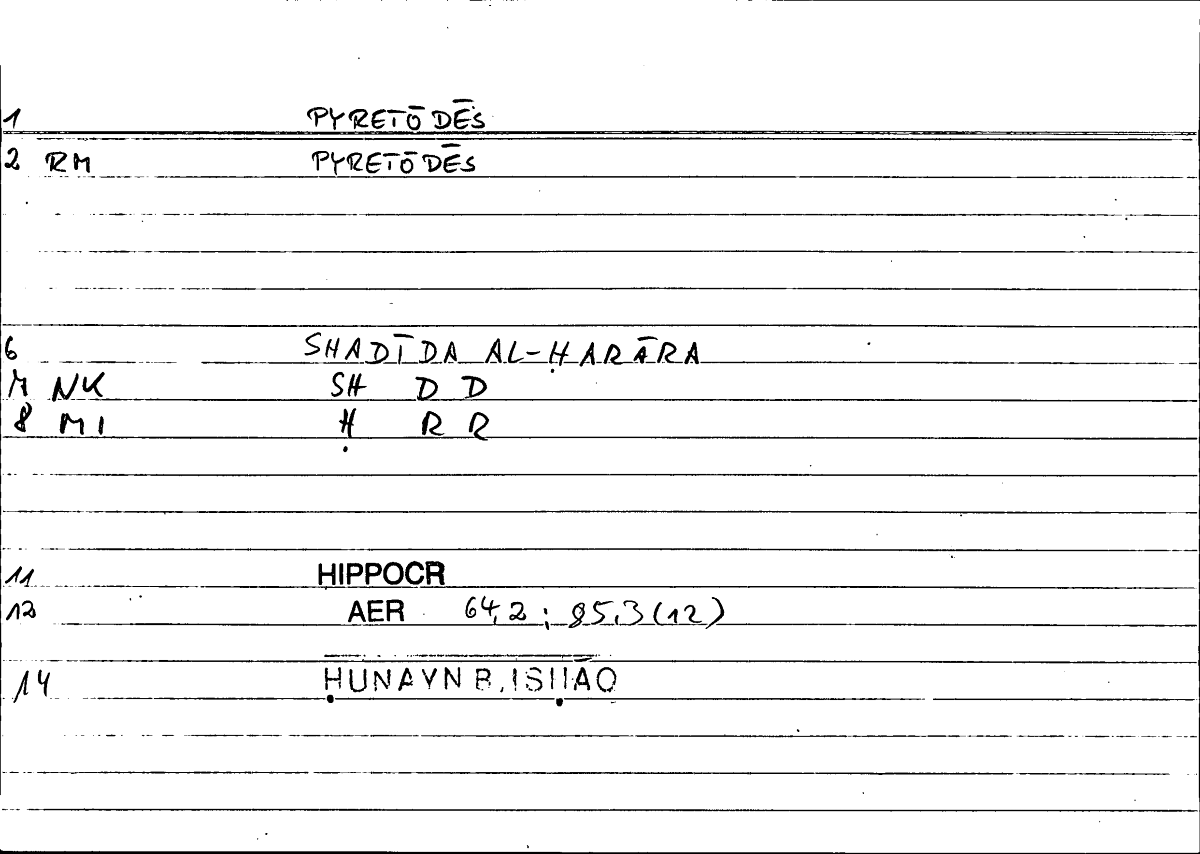 1 PYRETŌDĒS
2 RM PYRETŌDĒS
6 SHADĪDA AL-ḤARĀRA
7 NK SH D D
8 MI Ḥ R R
11 HIPPOCR
12 AER 64,2; 85,3 (12)
14 ḤUNAYN B. ISḤĀQ